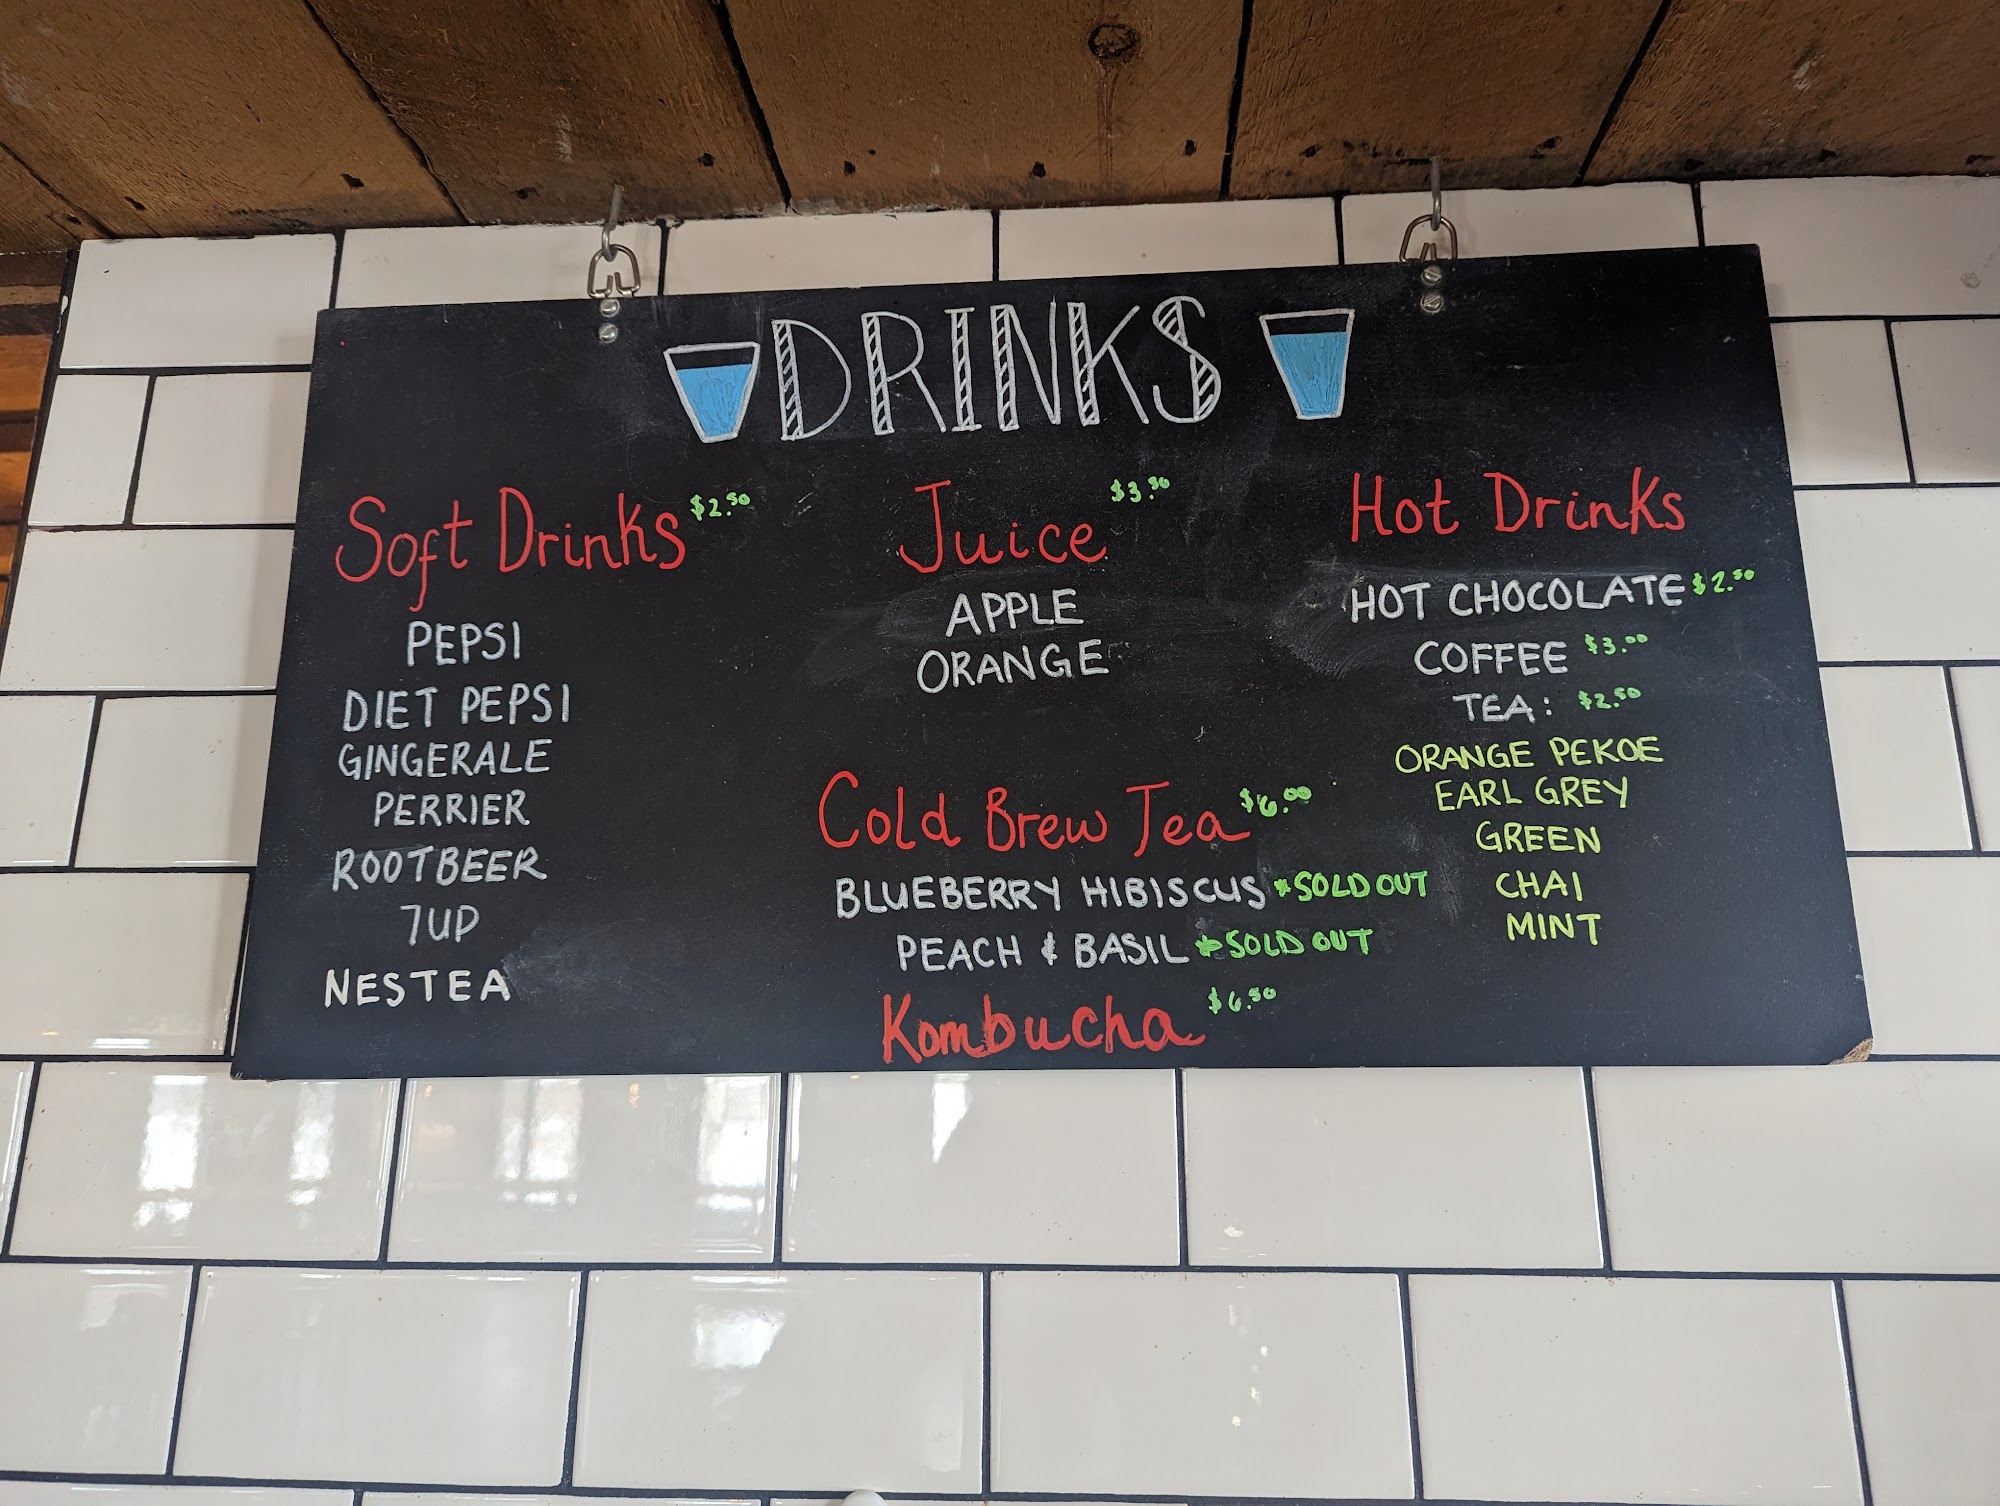 DRINKS
Soft Drinks $2.50
PEPSI
DIET PEPSI
GINGERALE
PERRIER
ROOTBEER
7UP
NESTEA
Juice $3.50
APPLE
ORANGE
Cold Brew Tea $6.00
BLUEBERRY HIBISCUS *SOLD OUT
PEACH & BASIL *SOLD OUT
Kombucha $6.50
Hot Drinks
HOT CHOCOLATE $2.50
COFFEE $3.00
TEA: $2.50
ORANGE PEKOE
EARL GREY
GREEN
CHAI
MINT